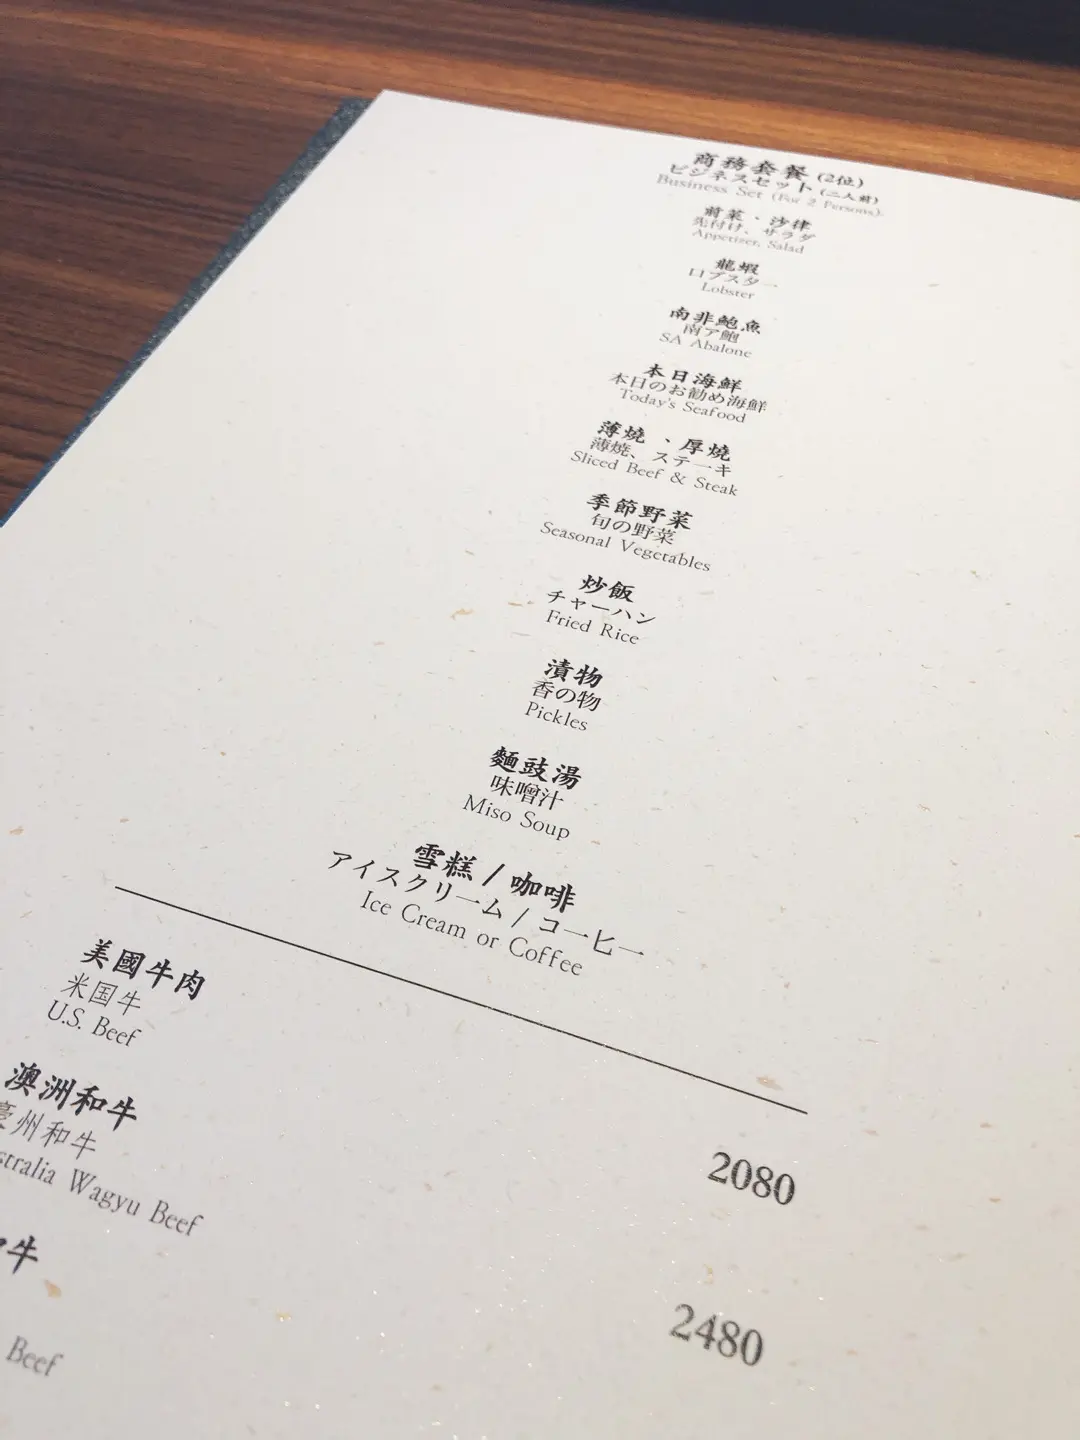 商務套餐 (2位)
ビジネスセット (二人前)
Business Set (For 2 Persons)
前菜、沙律
先付け、サラダ
Appetizer, Salad
龍蝦
ロブスター
Lobster
南非鮑魚
南ア鮑
SA Abalone
本日海鮮
本日のお勧め海鮮
Today's Seafood
薄燒、厚燒
薄焼、ステーキ
Sliced Beef & Steak
季節野菜
旬の野菜
Seasonal Vegetables
炒飯
チャーハン
Fried Rice
漬物
香の物
Pickles
麵豉湯
味噌汁
Miso Soup
雪糕 / 咖啡
アイスクリーム / コーヒー
Ice Cream or Coffee
美國牛肉
米国牛
U.S. Beef
2080
澳洲和牛
豪州和牛
stralia Wagyu Beef
2480
牛
Beef